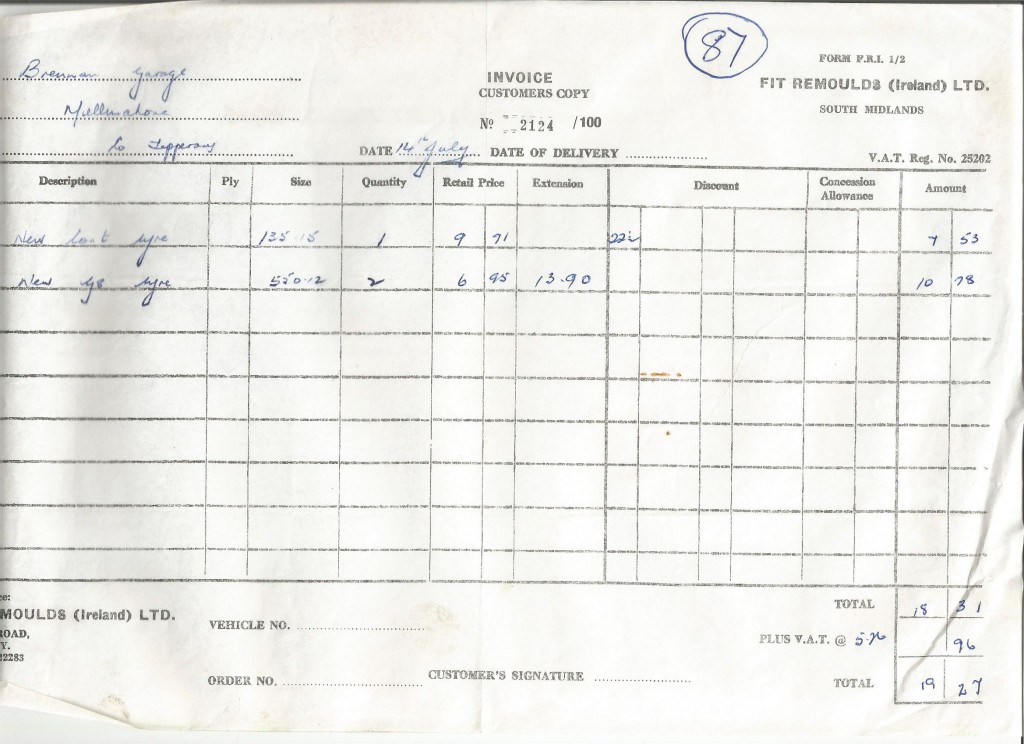 87
FORM F.R.I. 1/2
Brennan Garage
INVOICE
FIT REMOULDS (Ireland) LTD.
CUSTOMERS COPY
Mullinahone
SOUTH MIDLANDS
No 2124 /100
Co Tipperary
DATE 14th July DATE OF DELIVERY
V.A.T. Reg. No. 25202
Description Ply Size Quantity Retail Price Extension Discount Concession Allowance Amount
New tyre 135-15 1 9 71 22½ 7 53
New G8 tyre 550-12 2 6 95 13.90 10 78
ce:
TOTAL 18 31
MOULDS (Ireland) LTD.
VEHICLE NO.
ROAD,
PLUS V.A.T. @ 96
Y.
2283
ORDER NO. CUSTOMER'S SIGNATURE TOTAL 19 27